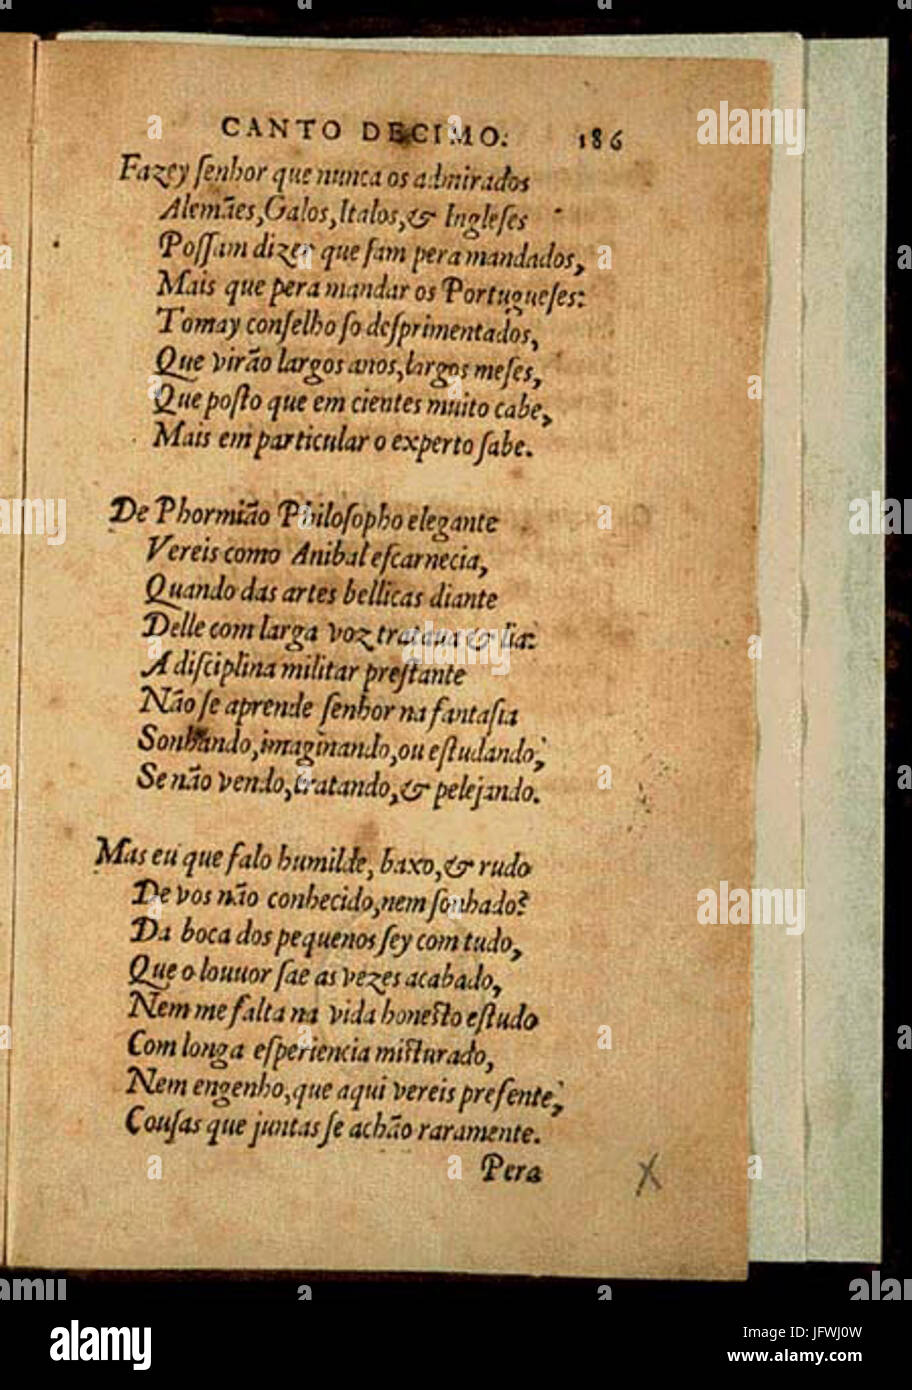 CANTO DECIMO. 186
Fazey ſenhor que nunca os admirados
Alemães, Galos, Italos, & Ingleſes
Poſſam dizer que ſam pera mandados,
Mais que pera mandar os Portugueſes:
Tomay conſelho ſo deſprimentados,
Que virão largos anos, largos meſes,
Que poſto que em cientes muito cabe,
Mais em particular o experto ſabe.
De Phormião Philoſopho elegante
Vereis como Anibal eſcarnecia,
Quando das artes bellicas diante
Delle com larga voz trataua & lia:
A diſciplina militar preſtante
Não ſe aprende ſenhor na fantaſia
Sonhando, imaginando, ou eſtudando,
Se não vendo, tratando, & pelejando.
Mas eu que falo humilde, baxo, & rudo
De vos não conhecido, nem ſonhado?
Da boca dos pequenos ſey com tudo,
Que o louuor ſae as vezes acabado,
Nem me falta na vida honeſto eſtudo
Com longa eſperiencia miſturado,
Nem engenho, que aqui vereis preſente,
Couſas que juntas ſe achão raramente.
Pera
alamy
alamy
Image ID: JFWJ0W
www.alamy.com